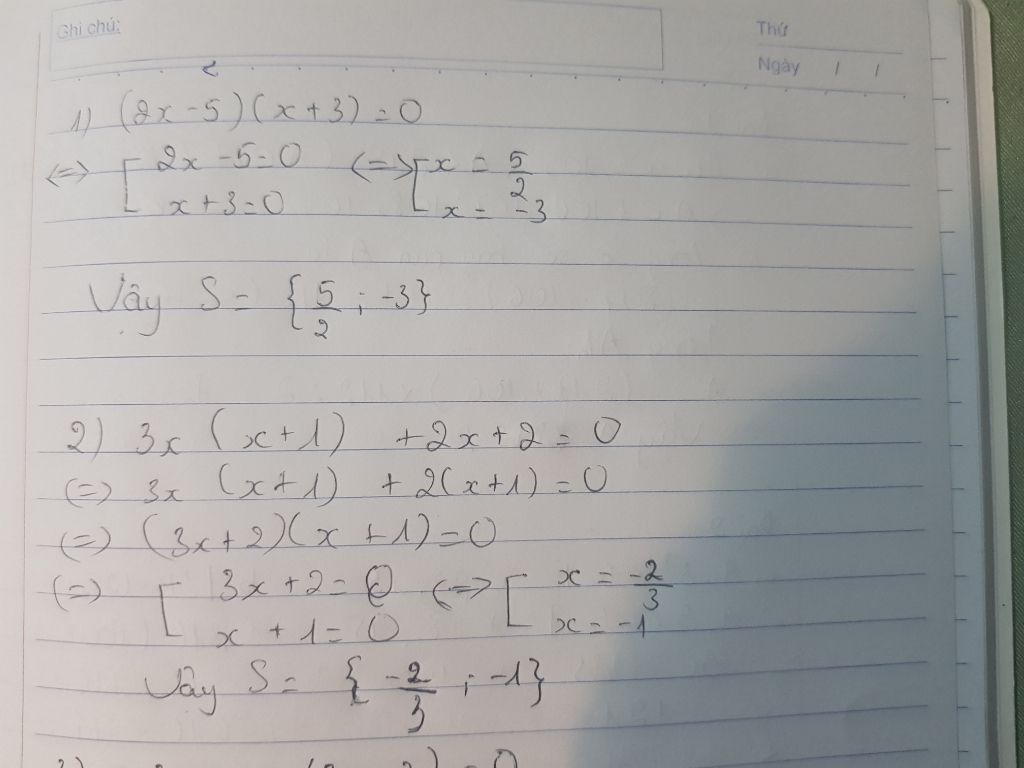 Ghi chú:
Thứ
Ngày / /
1) (2x - 5)(x + 3) = 0
<=> [ 2x - 5 = 0 <=> [ x = 5/2
x + 3 = 0 x = -3
Vậy S = { 5/2 ; -3}
2) 3x (x + 1) + 2x + 2 = 0
(=) 3x (x + 1) + 2(x + 1) = 0
(=) (3x + 2)(x + 1) = 0
(=) [ 3x + 2 = 0 <=> [ x = -2/3
x + 1 = 0 x = -1
Vậy S = { -2/3 ; -1}